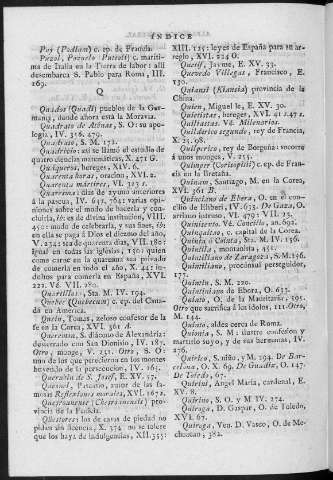 ÍNDICE
Puy (Podium) c. ep. de Francia.
Puzol, Puzuelo Puteoli) c. marítima
de Italia en la Tierra de labor: allí
desembarca S. Pablo para Roma, III.
169.
Q
Quados (Quadi) pueblos de la Germania,
donde ahora está la Moravia.
Quadrato de Atenas, S. O: su apologia,
IV. 356. 479.
Quadrato, S. M. 171.
Quadrivio: así se llamó el estudio de
quatro ciencias matemáticas, X. 471 G.
Quáqueros, hereges, XIV. 6.
Quarenta horas, oracion, XVI. 2.
Quarenta mártires, VI. 323 s.
Quaresma: dias de ayuno anteriores
á la pascua, IV. 645. 701: varias opiniones
sobre el modo de hacerla y concluirla,
ib: es de divina institucion, VIII.
450: modo de celebrarla, y sus fines, ib:
en ella se pagá á Dios el diezmo del año,
V. 234: sea de quarenta dias, VII. 180:
igual en todas las iglesias, 150: quien
come carne en la quaresma sea privado
de comerla en todo el año, X. 44: indultos
para comerla en España, XVI.
222. Vé. VII. 280.
Quartillas, Sta. M. IV. 194.
Quebec (Quebecum) c. ep. del Canadá
en America.
Quen, Tomas, zeloso confesor de la
fe en la Corea, XVI. 361 A.
Querentino, S. diácono de Alexandría:
desterrado con San Dionisio, IV. 187.
Otro, monge, V. 231. Otro, S. O:
uno de los que perecieron en los montes
huyendo de la persecucion, IV. 165.
Querubin de S. Josef, E. XV. 57.
Quesnel, Pascasio, autor de las famosas
Reflexiones morales, XVI. 167 s.
Quersonense (Chersonensis) provincia
de la Fenicia.
Qüestores: los de casas de piedad no
pidan sin licencia, X. 374: no se tolere
que los haya de indulgencias, XII. 355:
XIII. 125: leyes de España para su arreglo,
XVI. 224 O.
Querif, Jayme, E. XV. 33.
Quevedo Villegas, Francisco, E.
130.
Quiansi (Kiansia) provincia de la
China.
Quien, Miguel le, E. XV. 30.
Quietistas, hereges, XVI. 41 s. 47 s.
Quiliastas. Vé. Milenarios.
Quilderico segundo, rey de Francia,
X. 25. 68.
Quilperico, rey de Borgoña: socorre
á unos monges, V. 255.
Quimper (Corisopiti) c. ep. de Francia
en la Bretaña.
Quinaro, Santiago, M. en la Corea,
XVI. 361 Z.
Quinciano de Ebora, O. en el concilio
de Eliberi, IV. 633. De Gaza, O.
arriano intruso, VI. 479: VII. 23.
Quinisexto. Vé. Concilio, an. 692.
Quinquitao, c. capital de la Corea.
Quinta ó Cuinta, Sta. M. IV. 156.
Quintila, montanista, 451.
Quintiliano de Zaragoza, S. M: 156.
Quintiliano, proconsul perseguidor,
177.
Quintin, S. M. 220.
Quintiniano de Ebora, O. 633.
Quinto, O. de la Mauritania, 595.
Otro que sacrifica á los ídolos, 111. Otro,
M. 154.
Quinto, aldea cerca de Roma.
Quionia, S. M: ilustre confesion y
martirio suyo, y de sus hermanas, IV.
276.
Quirico, S. niño, y M. 294. De Barcelona,
O. X. 69. De Guadix, O. 147.
De Toledo, 67.
Quirini, Angel María, cardenal, E.
XV. 8.
Quirino, S. O. y M. IV. 274.
Quiroga, D. Gaspar, O. de Toledo,
XVI. 67.
Quiroga, Ven. D. Vasco, O. de Mechoacan,
382.